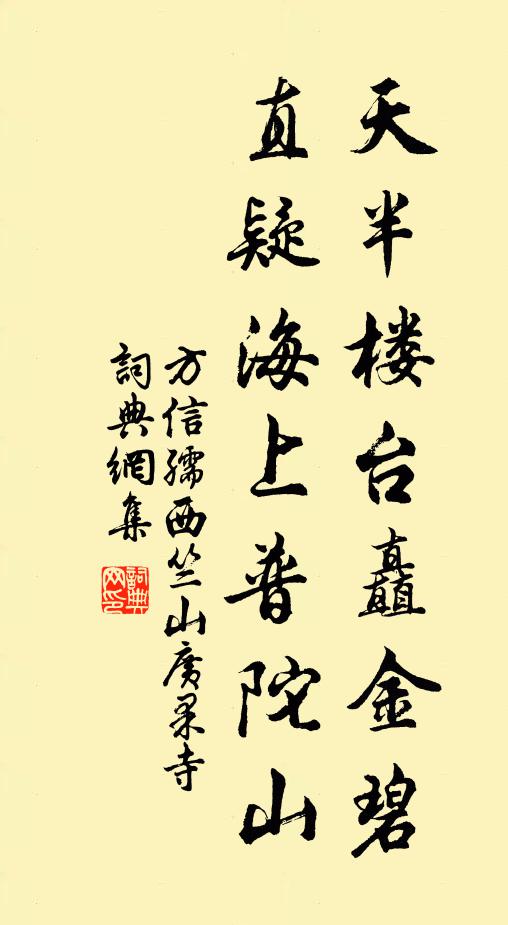 天半楼台矗金碧
直疑海上普陀山
方信孺西竺山广果寺
詞典網集
詞典網印